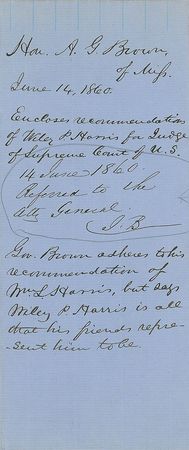 Hon. A. G Brown,
of Miss.
June 14, 1860.
Encloses recommendation
of Wiley P. Harris for Judge
of Supreme Court of U. S.
14 June 1860.
Referred to the
Atty General.
J. B
Gov. Brown adheres to his
recommendation of
Wm L Harris, but says
Wiley P. Harris is all
that his friends repre-
sent him to be